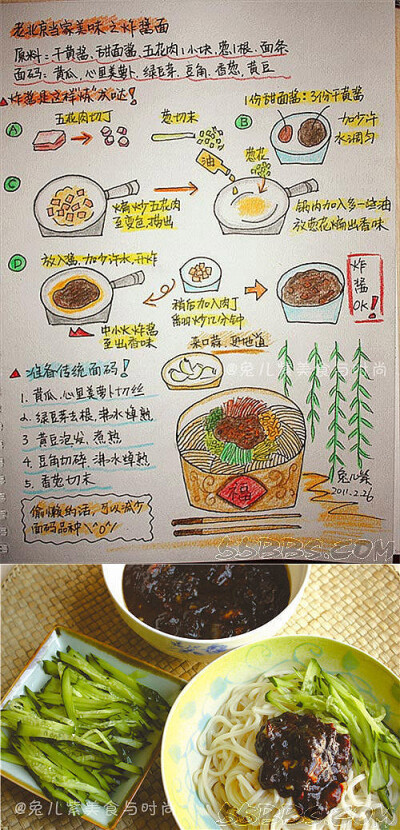 老北京当家美味之炸酱面
原料：干黄酱、甜面酱、五花肉1小块、葱1根、面条
面码：黄瓜、心里美萝卜、绿豆芽、豆角、香葱、黄豆
炸酱是这样炼成哒！
A
五花肉切丁
葱切末
B
1份甜面酱：3份干黄酱
加少许
水调匀
C
煸炒五花肉
至变色，捞出
油
葱花
锅内加入多一些油
放葱花煸出香味
D
放入酱，加少许水，开炸
中小火炸酱
至出香味
稍后加入肉丁
翻炒几分钟
炸
酱
OK！
来口蒜，更地道
@兔儿紫美食与时尚
准备传统面码！
1. 黄瓜、心里美萝卜切丝
2. 绿豆芽去根，沸水焯熟
3 黄豆泡发，煮熟
4. 豆角切碎，沸水焯熟
5. 香葱切末
偷懒的话，可以减少
面码品种\^o^/
福
兔儿紫
2011.2.26
55BBS.COM
@兔儿紫美食与时尚
55BBS.COM